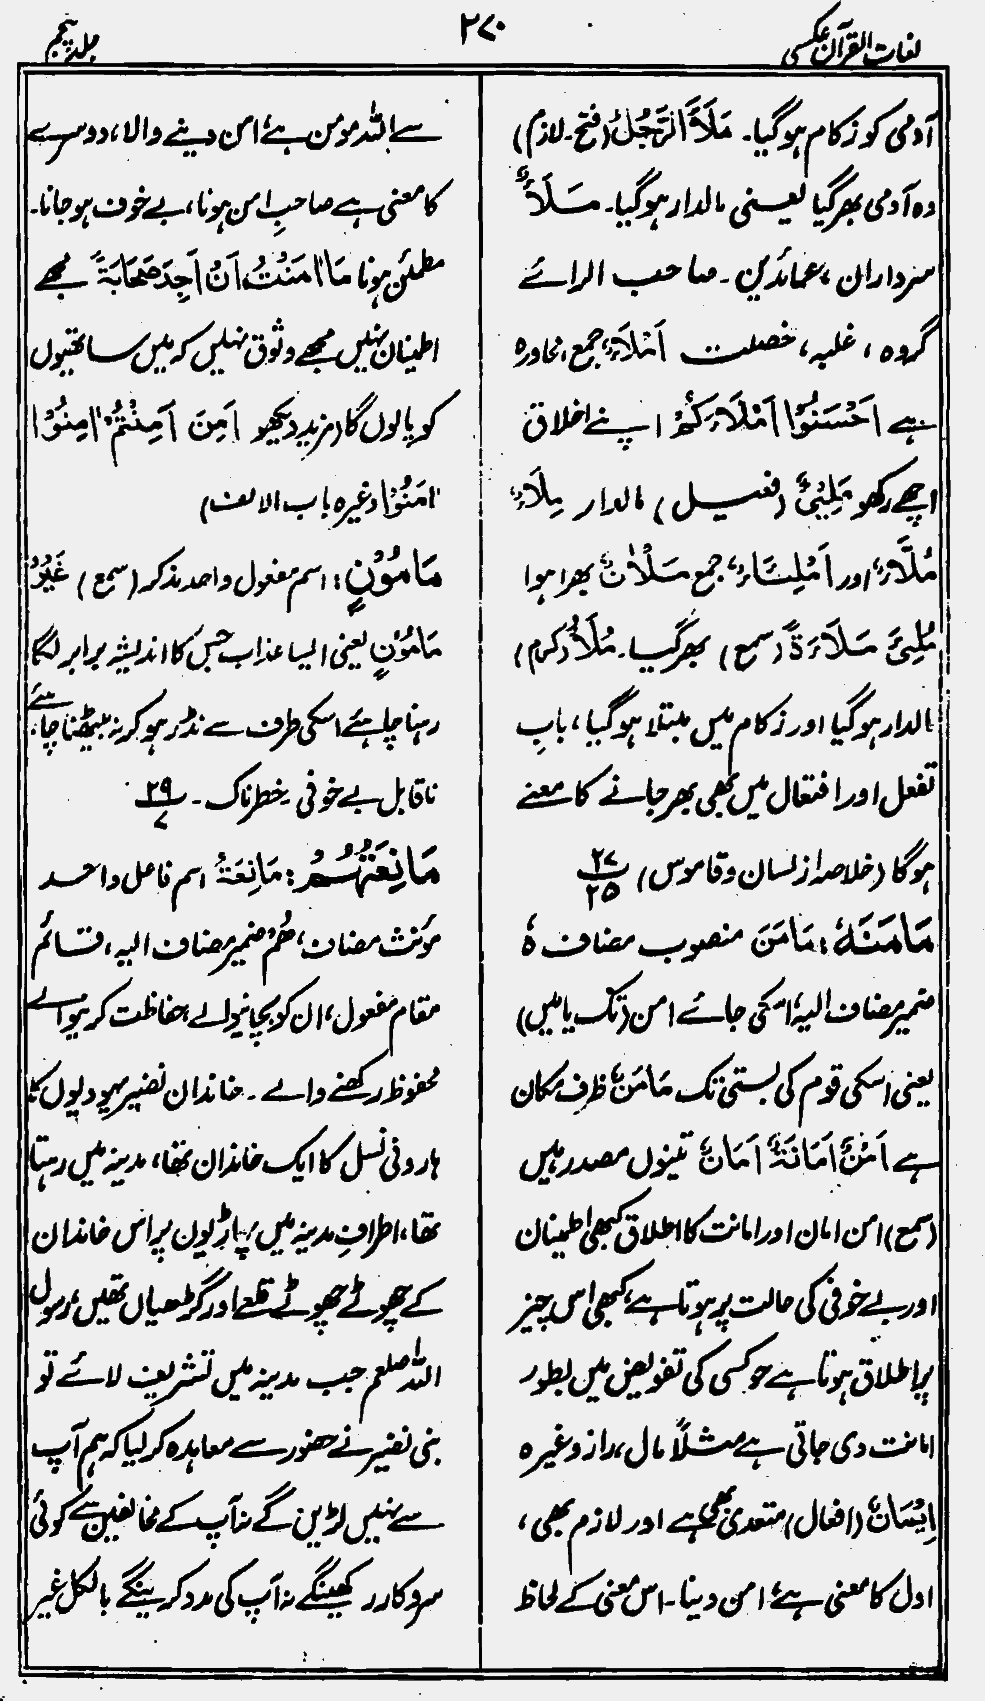 لغات القرآن عکسی
۲۷۰
جلد پنجم
آدمی کو زکام ہوگیا۔ مَلَأَ الرَّجُلُ (فتح۔ لازم)
وہ آدمی بھر گیا یعنی مالدار ہوگیا۔ مَلَأٌ
سرداران، عمائدین۔ صاحب الرائے
گروہ، غلبہ، خصلت اَمْلَاءٌ جمع، محاورہ
ہے اَحْسِنُوْا اَمْلَاءَکُمْ اپنے اخلاق
اچھے رکھو مَلِیْئٌ (فعیل) مالدار مِلَاءٌ،
مُلَّاءٌ اور اَمْلِئَاءُ جمع مَلْاٰنُ بھرا ہوا
مُلِئَ مَلَاءَۃً (سمع) بھر گیا۔ مُلَأَ (کرم)
مالدار ہوگیا اور زکام میں مبتلا ہوگیا، بابِ
تفعل اور افتعال میں بھی بھر جانے کا معنے
ہوگا (خلاصہ از لسان وقاموس) ۲۷/۲۵
مَامَنَہٗ: مَامَنَ منصوب مضاف ہٗ
ضمیر مضاف الیہ، اسکی جائے امن (تک یا میں)
یعنی اسکی قوم کی بستی تک مَامَنٌ ظرف مکان
ہے اَمْنٌ اَمَانَۃٌ اَمَانٌ تینوں مصدر ہیں
(سمع) امن امان اور امانت کا اطلاق کبھی اطمینان
اور بے خوفی کی حالت پر ہوتا ہے، کبھی اس چیز
پر اطلاق ہوتا ہے جو کسی کی تفویض میں بطور
امانت دی جاتی ہے مثلاً مال، راز وغیرہ
اِیْمَانٌ (افعال) متعدی بھی ہے اور لازم بھی،
اول کا معنی ہے، امن دینا۔ اس معنی کے لحاظ
سے اللہ مومن ہے، امن دینے والا، دوسرے
کا معنی ہے صاحبِ امن ہونا، بے خوف ہو جانا۔
مطمئن ہونا مَا اٰمَنْتُ اَنْ اَجِدَ صَحَابَۃً مجھے
اطمینان نہیں مجھے وثوق نہیں کہ میں ساتھیوں
کو پالوں گا (مزید دیکھو اَمِنَ اَمِنْتُمْ اٰمِنُوْا
اٰمَنُوْا وغیرہ باب الالف)
مَامُوْنٍ: اسم مفعول واحد مذکر (سمع) غَیْرُ
مَامُوْنٍ یعنی ایسا عذاب جس کا اندیشہ برابر لگا
رہنا چاہئے اسکی طرف سے نڈر ہو کر نہ بیٹھنا چاہئے،
ناقابل بے خوفی۔ خطرناک۔ ۲۹/۷
مَانِعَتُہُمْ: مَانِعَۃُ اسم فاعل واحد
مؤنث مضاف، ھُمْ ضمیر مضاف الیہ، قائم
مقام مفعول، ان کو بچانیوالے، حفاظت کرنیوالے
محفوظ رکھنے والے۔ خاندان نضیر یہودیوں کا
ہارونی نسل کا ایک خاندان تھا، مدینہ میں رہتا
تھا، اطرافِ مدینہ میں پہاڑیوں پر اس خاندان
کے چھوٹے چھوٹے قلعے اور گڑھیاں تھیں، رسول
اللہ صلعم جب مدینہ میں تشریف لائے تو
بنی نضیر نے حضور سے معاہدہ کر لیا کہ ہم آپ
سے نہیں لڑیں گے نہ آپ کے مخالفین سے کوئی
سروکار رکھینگے نہ آپ کی مدد کرینگے بالکل غیر